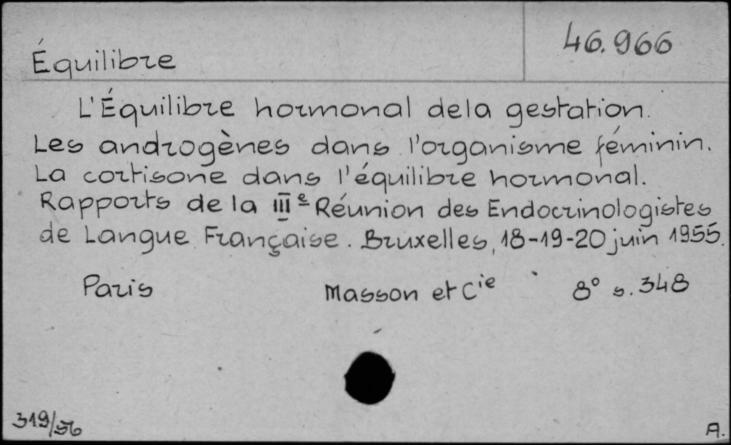 Équilibre
46.966
L'Équilibre hormonal dela gestation.
Les androgènes dans l'organisme féminin.
La cortisone dans l'équilibre hormonal.
Rapports de la IIIe Réunion des Endocrinologistes
de Langue Française. Bruxelles, 18-19-20 juin 1955.
Paris Masson et Cie 8° s. 348
319/56
A.